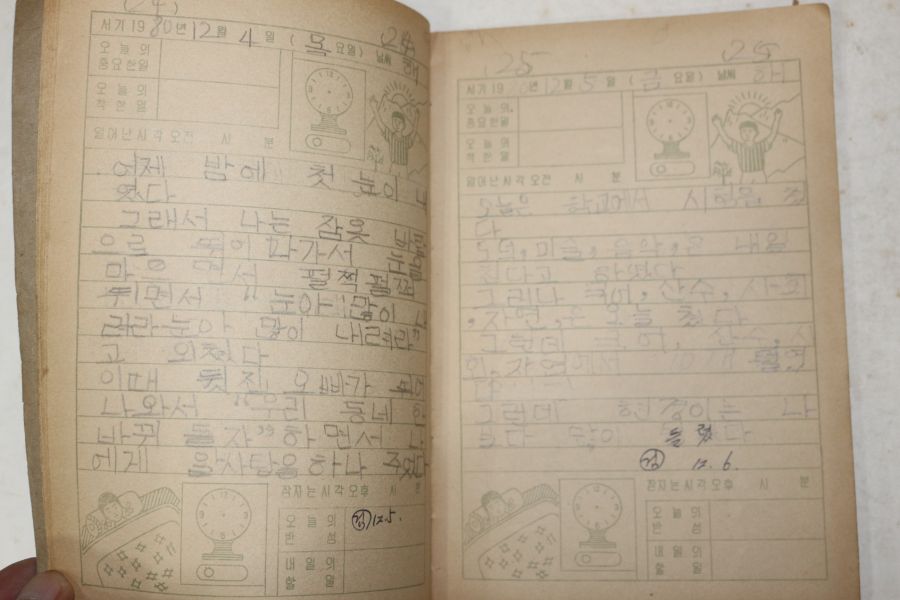 (24)
24
서기 1980년 12월 4일 (목요일) 날씨 해
오늘의
중요한일
오늘의
착한일
일어난시각 오전 시 분
어제 밤에 첫 눈이 내
렸다
그래서 나는 잠옷 바람
으로 뛰어나가서 눈을
맞으면서 펄쩍펄쩍
뛰면서 "눈아 많이 내
려라 눈아 많이 내려라"
고 외쳤다
이때 뒷집 오빠가 뛰어
나와서 "우리 동네 한
바퀴 돌자" 하면서 나
에게 알사탕을 하나 주었다
잠자는시각 오후 시 분
오늘의
반성
12.5.
내일의
할일
(25)
25
서기 1980년 12월 5일 (금요일) 날씨 해
오늘의
중요한일
오늘의
착한일
일어난시각 오전 시 분
오늘은 학교에서 시험을 쳤
다
도덕, 미술, 음악,은 내일
친다고 하였다
그러나 국어, 산수, 사회
, 자연,은 오늘 쳤다
그런데 국어, 산수, 사
회, 자연에서
다
그런데 현경이는 나
보다 많이 틀렸다
12.6.
잠자는시각 오후 시 분
오늘의
반성
내일의
할일